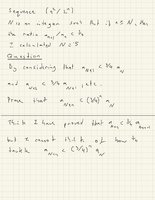 Sequence {n²/2ⁿ}
N is an integer such that if n ≥ N, then
the ratio aₙ₊₁/aₙ < ¾
I calculated N = 5
Question
By considering that a_N+1 < ¾ a_N
and a_N+2 < ¾ a_N+1, etc..
Prove that a_N+n < (3/4)ⁿ a_N
Think I have proved that
but I cannot think of how to
tackle a_N+n < (3/4)ⁿ a_N